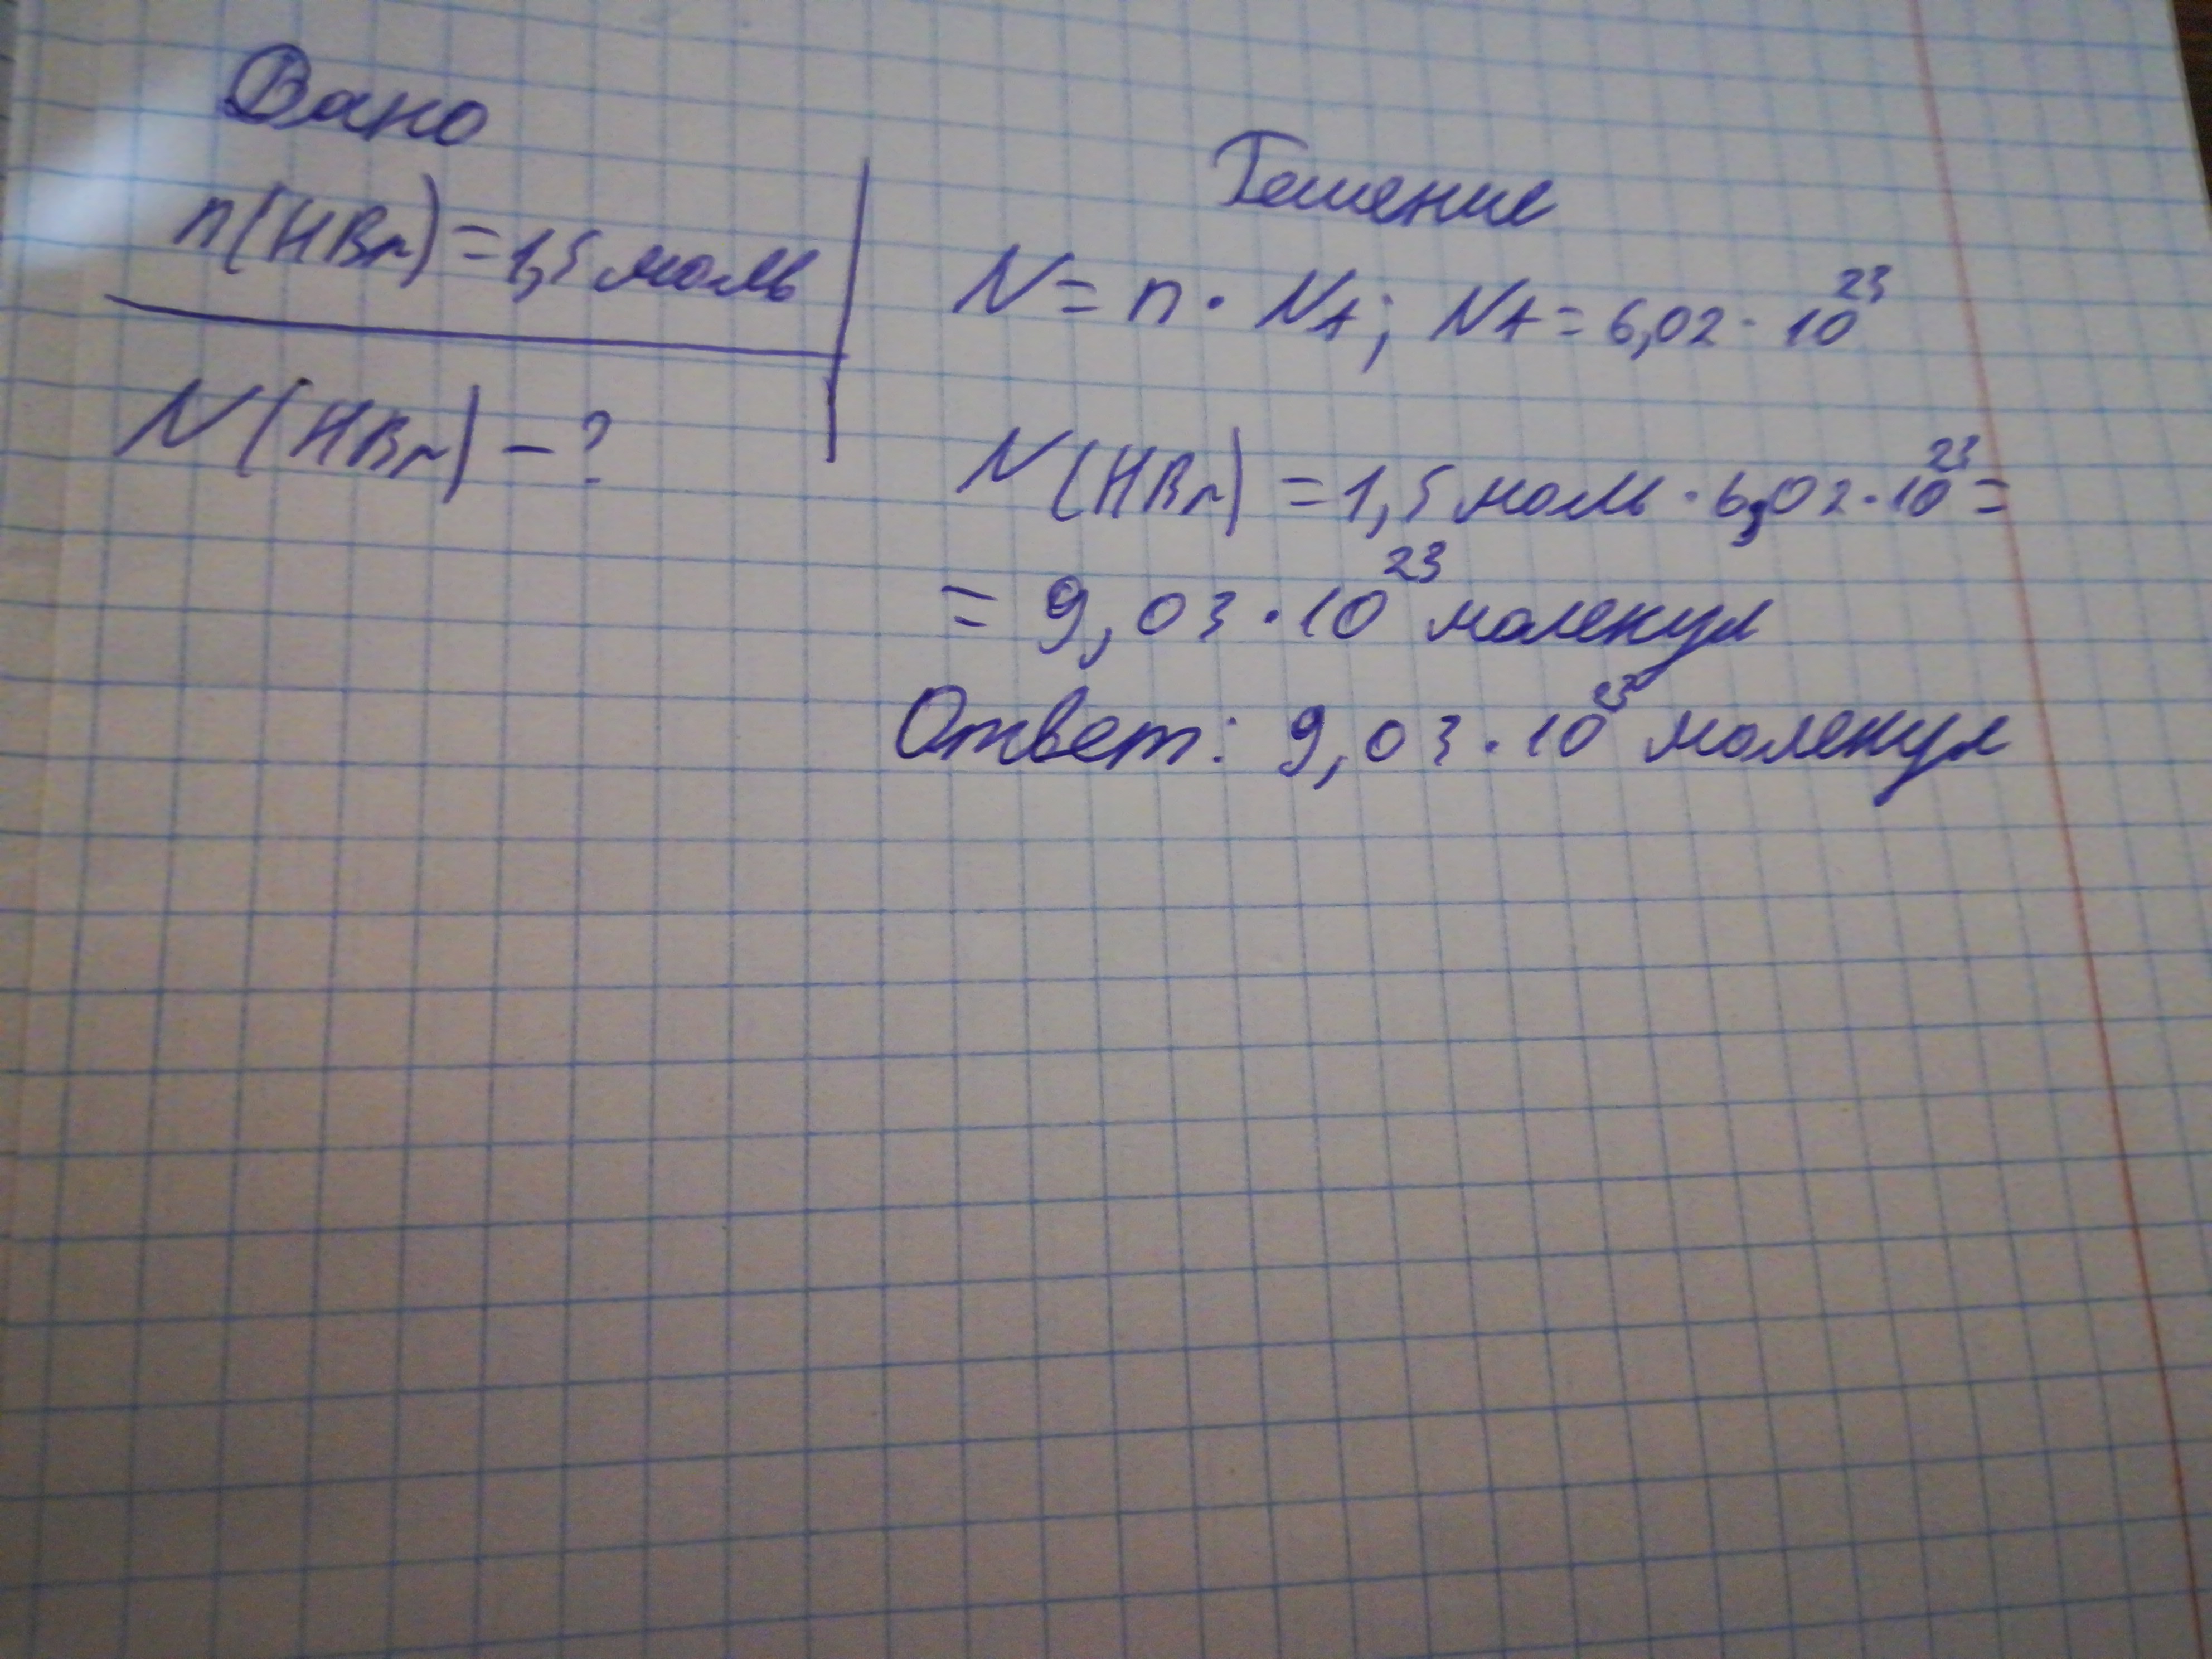 Дано
n(HBr) = 1,5 моль
N(HBr) – ?
Решение
N = n · NA; NA = 6,02 · 10²³
N(HBr) = 1,5 моль · 6,02 · 10²³ =
= 9,03 · 10²³ молекул
Ответ: 9,03 · 10²³ молекул